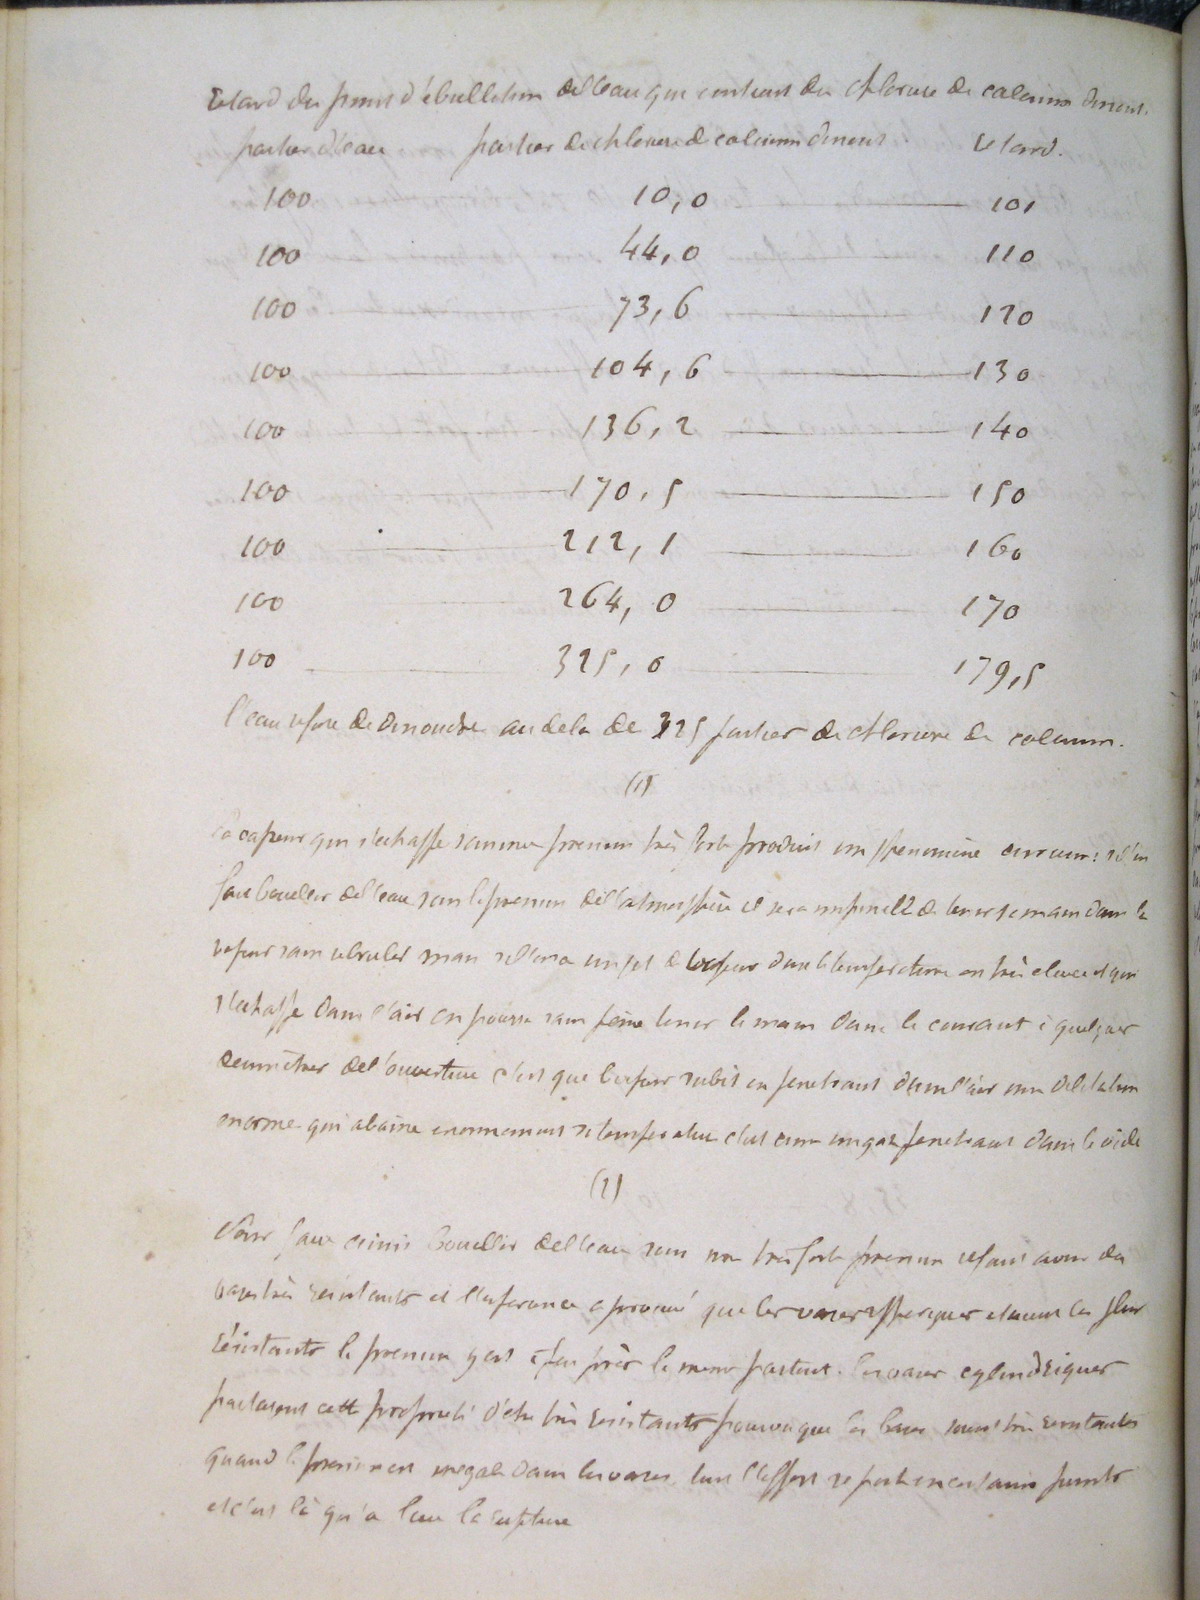 Retard du point d'ébullition de l'eau qui contient du chlorure de calcium dissout.
parties d'eau parties de chlorure de calcium dissout Retard.
100 10,0 101
100 44,0 110
100 73,6 120
100 104,6 130
100 136,2 140
100 170,5 150
100 212,1 160
100 264,0 170
100 325,0 179,5
l'eau refuse de dissoudre au dela de 325 parties de chlorure de calcium.
(1)
La vapeur qui s'echappe sous une pression très forte produit un phenomène curieux: si l'on
fait bouillir de l'eau sous la pression de l'atmosphère il sera impossible de tenir sa main dans la
vapeur sans se bruler mais si l'on a un jet de vapeur dont la temperature est très elevee et qui
s'echappe dans l'air on pourra sans peine tenir la main dans le courant à quelques
decimètres de l'ouverture c'est que la vapeur subit en penetrant dans l'air une dilatation
enorme qui abaisse enormement sa temperature c'est comme un gaz penetrant dans le vide
(2)
Pour faire ainsi bouillir de l'eau sous une très forte pression il faut avoir des
vases très resistants et l'experience a prouvé que les vases spheriques etaient les plus
résistants la pression y est à peu près la meme partout. les vases cylindriques
partagent cette propriété d'etre très resistants pourvu que les bases soient très resistantes
quand la pression est inegale dans les vases tout l'effort se porte en certains points
et c'est là qu'a lieu la rupture